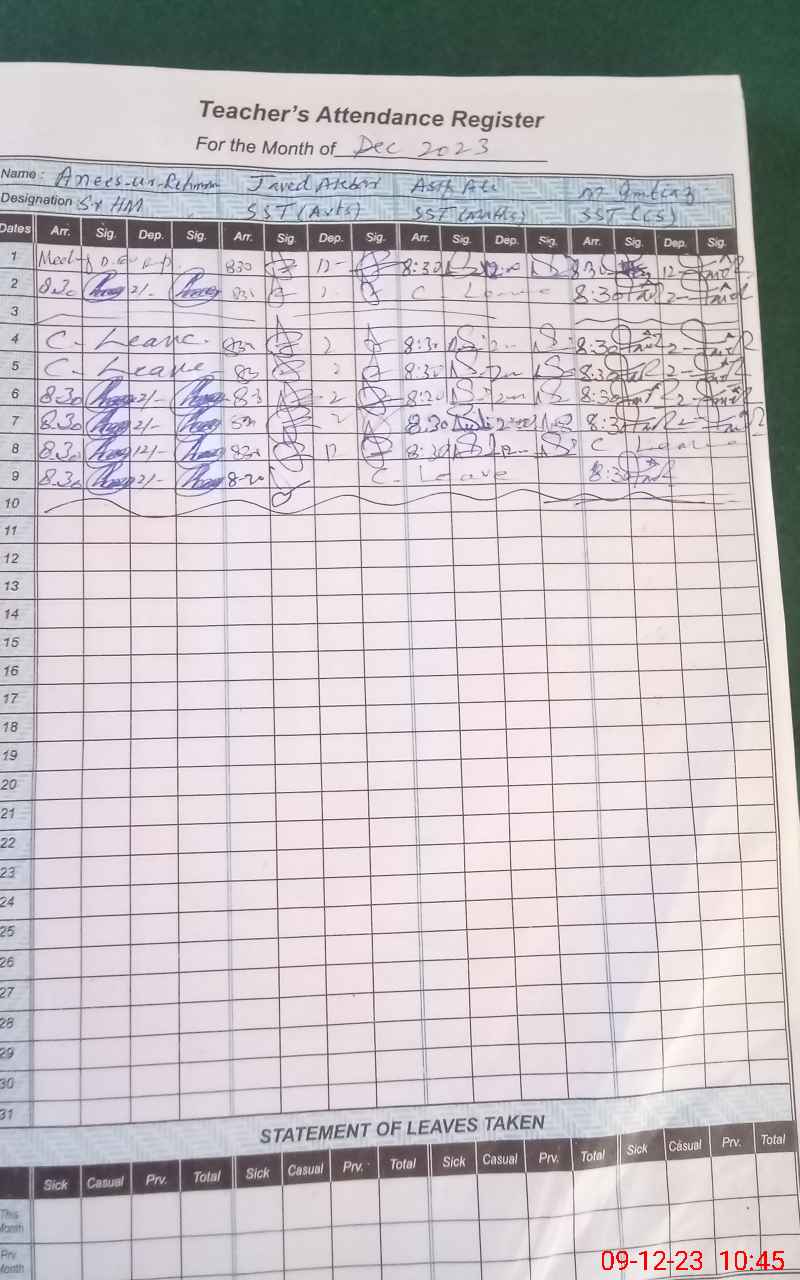 Teacher's Attendance Register
For the Month of Dec 2023
Name: Anees-ur-Rehman Javed Akbar Asif Ali M. Imtiaz
Designation Sr HM SST (Arts) SST (Maths) SST (CS)
Dates Arr. Sig. Dep. Sig. Arr. Sig. Dep. Sig. Arr. Sig. Dep. Sig. Arr. Sig. Dep. Sig.
1 830 12- 8:30 8:30 12-
2 8.30 2/- C. Leave 8:30 2-
3
4 C. Leave. 830 2 8:30 2- 8:30 2-
5 C. Leave 2 8:30 2- 8:30 2-
6 8.30 2/- 83 2 8:30 2- 8:30 2-
7 8.30 2/- 2 8.30 2- 8:30 2-
8 8.30 12/- 830 12 8:30 12- C Leave
9 8.30 2/- 8-20 C. Leave 8:30
10
11
12
13
14
15
16
17
18
19
20
21
22
23
24
25
26
27
28
29
30
31
STATEMENT OF LEAVES TAKEN
Sick Casual Prv. Total Sick Casual Prv. Total Sick Casual Prv. Total Sick Casual Prv. Total
This
Month
Prv.
Month
09-12-23 10:45